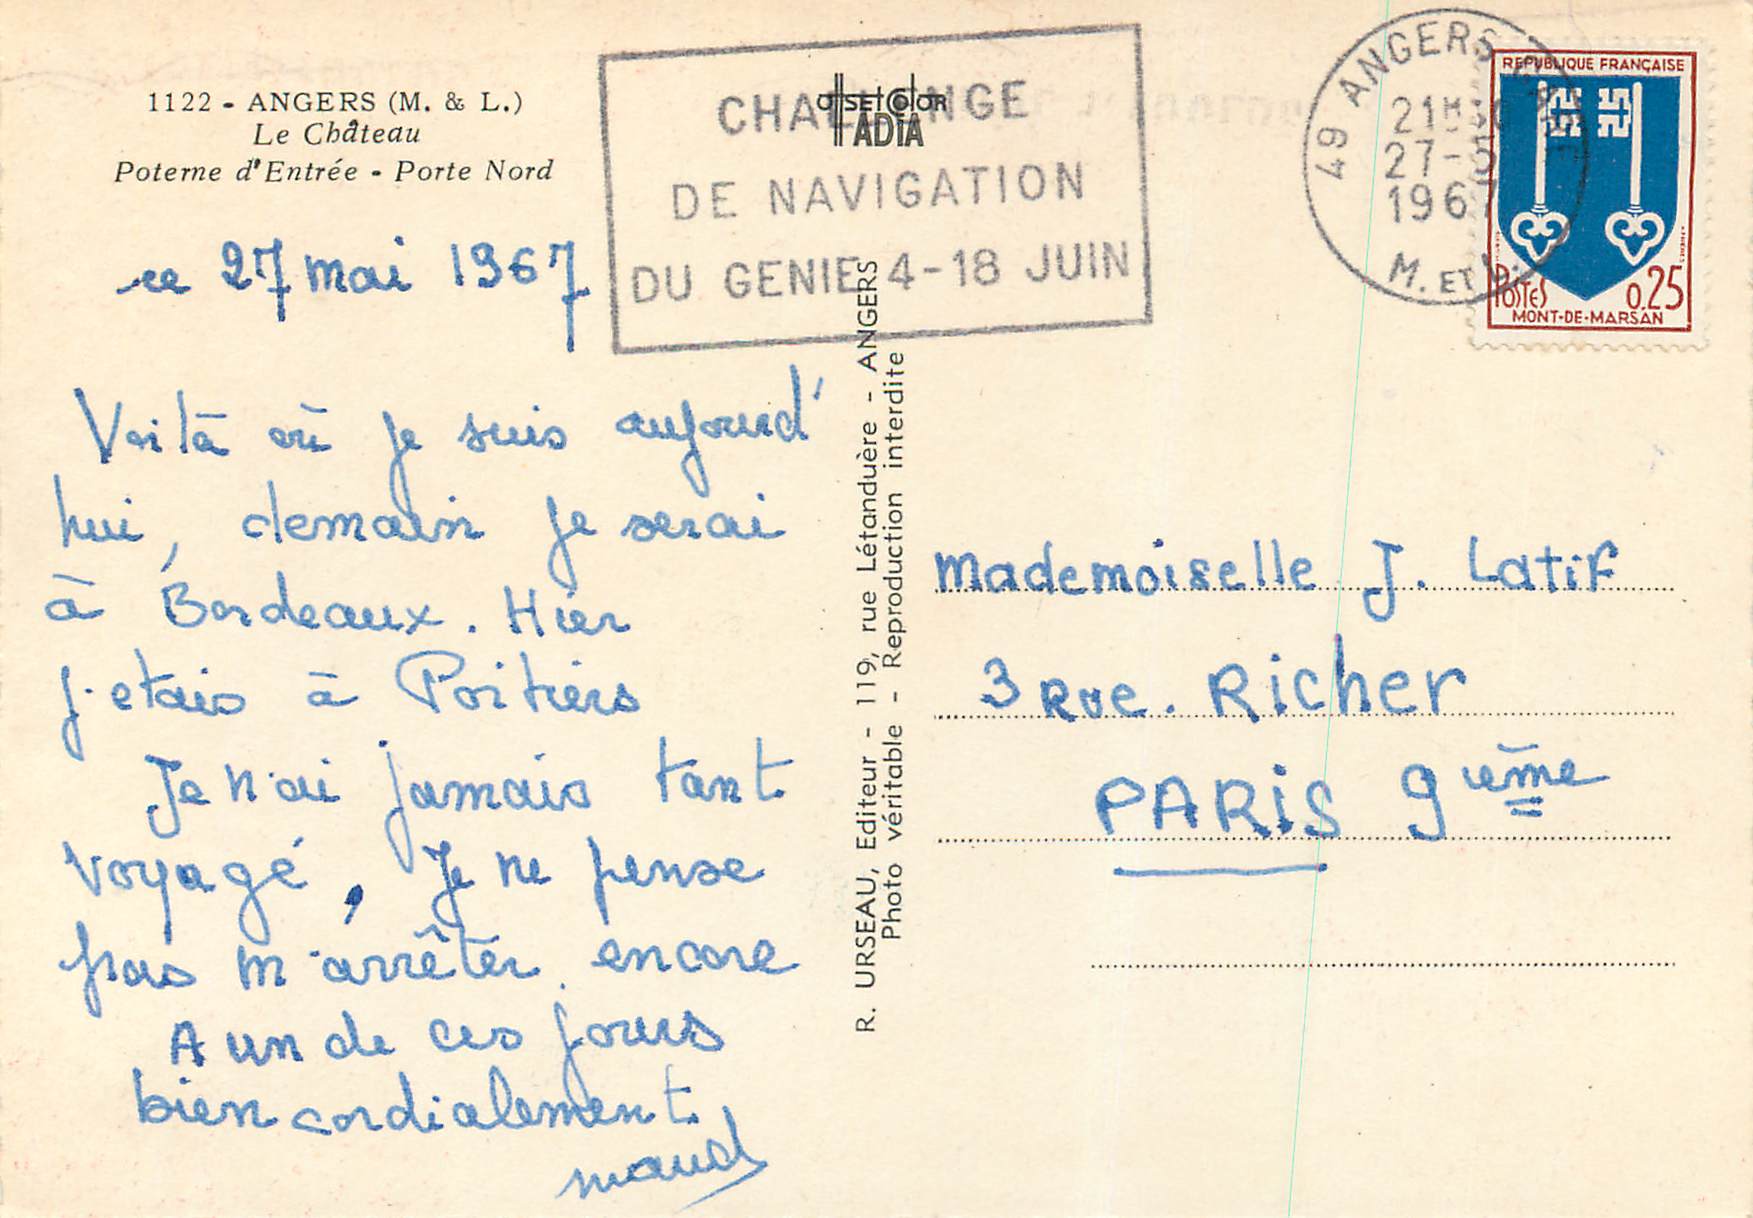 1122 - ANGERS (M. & L.)
Le Château
Poterne d'Entrée - Porte Nord
ce 27 mai 1967
Voilà où je suis aujourd'
hui, demain je serai
à Bordeaux. Hier
j'etais à Poitiers
Je n'ai jamais tant
voyagé, Je ne pense
pas m'arrêter encore
A un de ces jours
bien cordialement.
maud
OFFSET COLOR
ADIA
R. URSEAU, Editeur - 119, rue Létanduère - ANGERS
Photo véritable - Reproduction interdite
CHALLENGE
DE NAVIGATION
DU GENIE 4-18 JUIN
49 ANGERS GARE
21H30
27-5
1967
M. ET L.
REPUBLIQUE FRANÇAISE
POSTES 0,25
MONT-DE-MARSAN
Mademoiselle J. Latif
3 Rue. Richer
PARIS 9ième